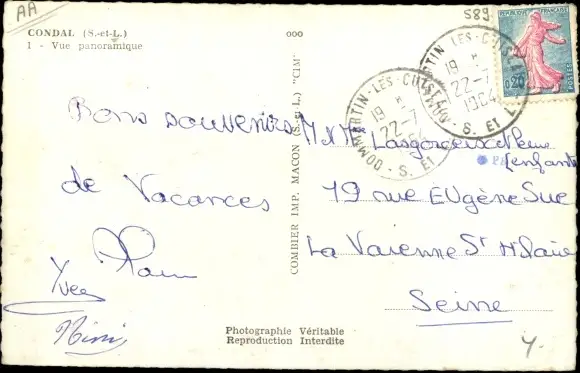 AA
CONDAL (S.-et-L.)
1 - Vue panoramique
000
589
0,20
DOMMARTIN-LES-CUISEAUX
19 H
22-7
1964
S. ET L.
DOMMARTIN-LES-CUISEAUX
19 H
22-7
S. ET
Bons souvenirs
de Vacances
Yves
Mimi
COMBIER IMP. MACON (S.-et-L.) "CIM"
M. Mme
[enfants
19 rue EUgène Sue
La Varenne St Hilaire
Seine
Photographie Véritable
Reproduction Interdite
4.